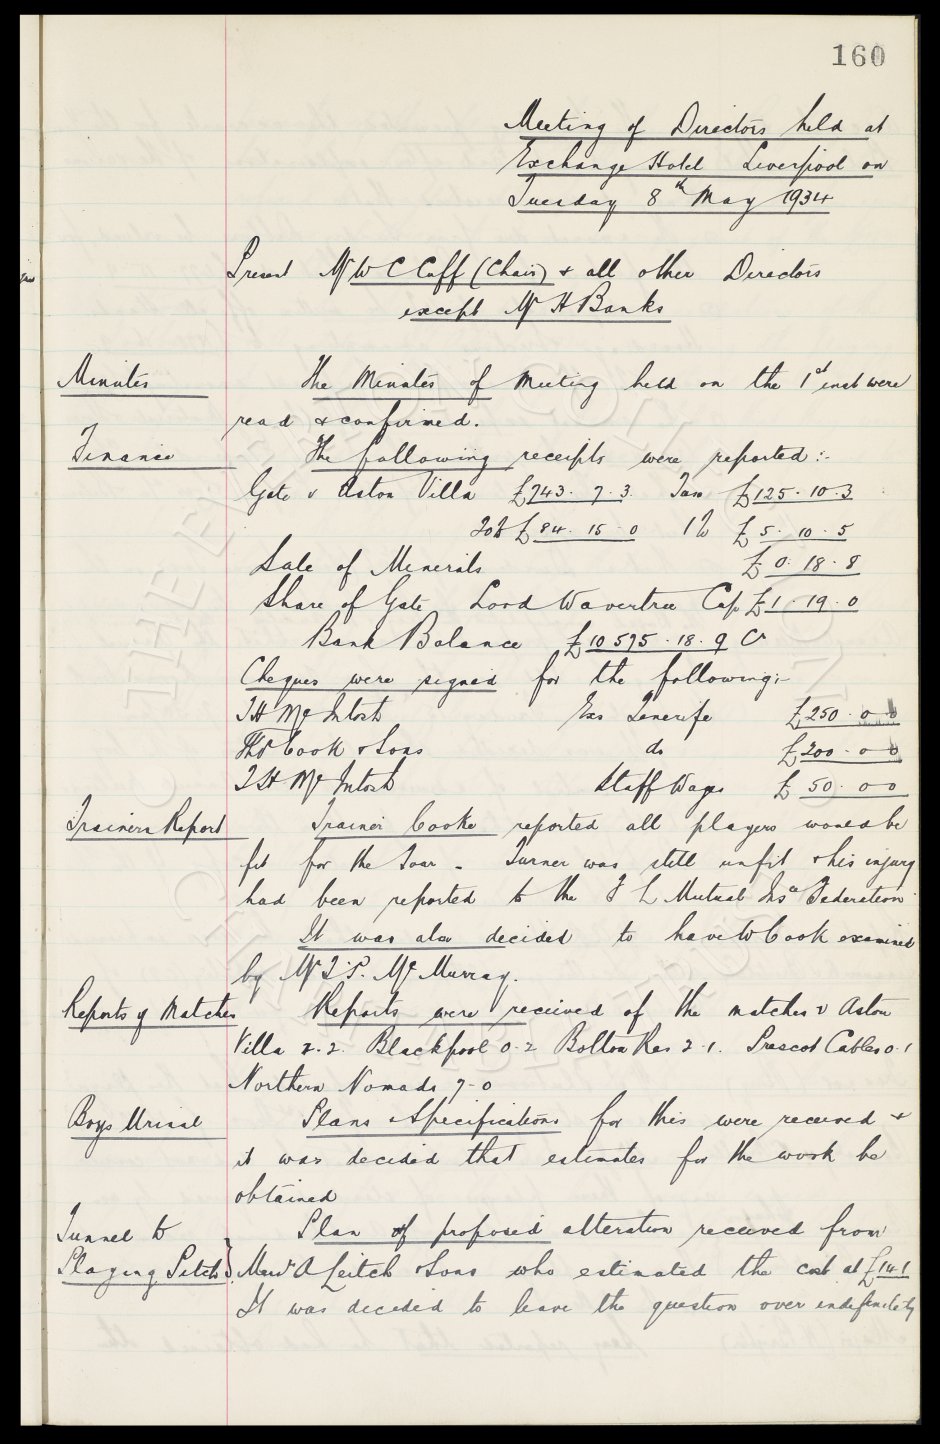 160
Meeting of Directors held at
Exchange Hotel Liverpool on
Tuesday 8th May 1934
Present Mr W C Cuff (Chair) & all other Directors
except Mr H Banks
Minutes The Minutes of Meeting held on the 1st inst were
read & confirmed.
Finance The following receipts were reported:-
Gate v Aston Villa £743. 7. 3. Tax £125. 10. 3
20% £84. 15. 0 1% £5. 10. 5
Sale of Minerals £0. 18. 8
Share of Gate Lord Wavertree Cup £1. 19. 0
Bank Balance £10575. 18. 9 Cr
Cheques were signed for the following:-
T H McIntosh Exs Tenerife £250. 0 0
Thos Cook & Sons do £200. 0 0
T H McIntosh Staff Wages £50. 0 0
Trainers Report Trainer Cooke reported all players would be
fit for the Tour - Turner was still unfit & his injury
had been reported to the F L Mutual Insce Federation
It was also decided to have W Cook examined
by Mr T. P. McMurray.
Reports of Matches Reports were received of the matches v Aston
Villa 2-2. Blackpool 0-2 Bolton Res 2-1. Prescot Cables 0-1
Northern Nomads 7-0
Boys Urinal Plans & Specifications for this were received &
it was decided that estimates for the work be
obtained
Tunnel to Plan of proposed alteration received from
Playing Pitch} Messrs A Leitch & Sons who estimated the cost at £141
It was decided to leave the question over indefinitely